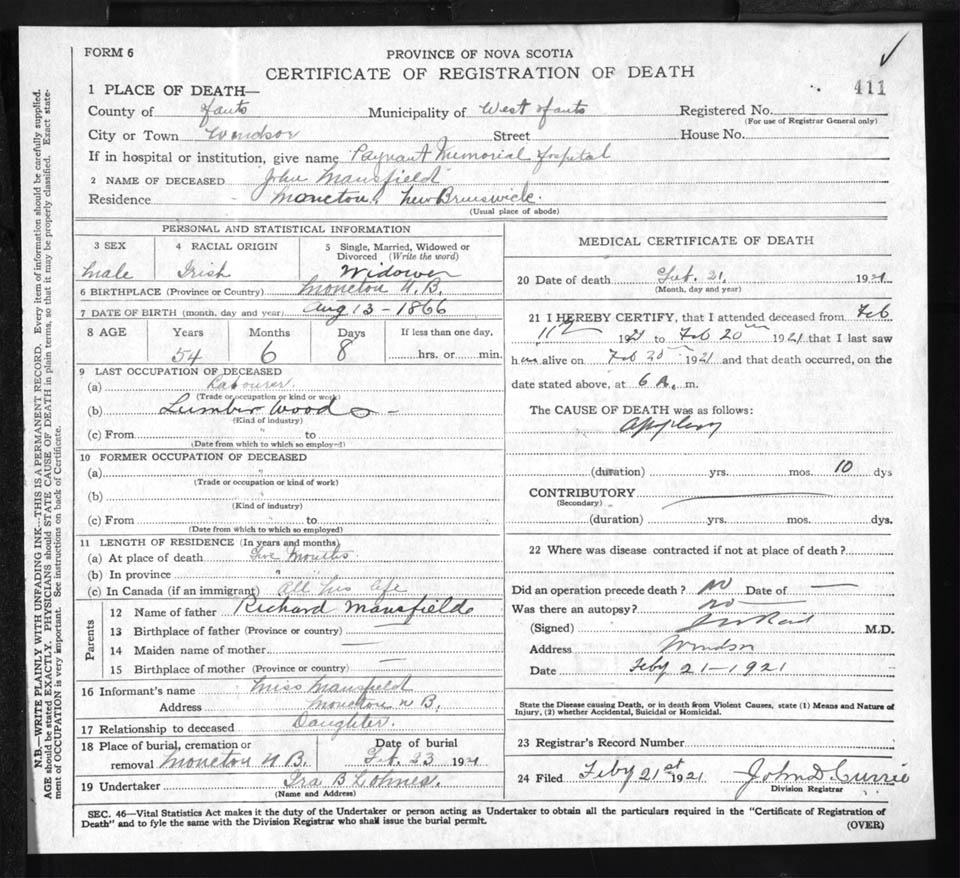 FORM 6
PROVINCE OF NOVA SCOTIA
CERTIFICATE OF REGISTRATION OF DEATH
411
1 PLACE OF DEATH—
County of Hants Municipality of West Hants Registered No.
(For use of Registrar General only)
City or Town Windsor Street House No.
If in hospital or institution, give name Payzant Memorial Hospital
2 NAME OF DECEASED John Mansfield
Residence Moncton, New Brunswick.
(Usual place of abode)
PERSONAL AND STATISTICAL INFORMATION
3 SEX 4 RACIAL ORIGIN 5 Single, Married, Widowed or Divorced (Write the word)
Male Irish Widower
6 BIRTHPLACE (Province or Country) Moncton N.B.
7 DATE OF BIRTH (month, day and year) Aug 13 - 1866
8 AGE Years Months Days If less than one day,
54 6 8 hrs. or min.
9 LAST OCCUPATION OF DECEASED
(a) Labourer.
(Trade or occupation or kind or work)
(b) Lumber Woods -
(Kind of industry)
(c) From to
(Date from which to which so employed)
10 FORMER OCCUPATION OF DECEASED
(a) "
(Trade or occupation or kind of work)
(b)
(Kind of industry)
(c) From " to
(Date from which to which so employed)
11 LENGTH OF RESIDENCE (In years and months)
(a) At place of death Months
(b) In province " "
(c) In Canada (if an immigrant) All his life
Parents
12 Name of father Richard Mansfield
13 Birthplace of father (Province or country) —
14 Maiden name of mother —
15 Birthplace of mother (Province or country) —
16 Informant's name Miss Mansfield
Address Moncton N B.
17 Relationship to deceased Daughter.
18 Place of burial, cremation or removal Moncton N B. Date of burial Feb. 23 1921
19 Undertaker Ira B Lohnes.
(Name and Address)
MEDICAL CERTIFICATE OF DEATH
20 Date of death Feb. 21, 1921.
(Month, day and year)
21 I HEREBY CERTIFY, that I attended deceased from Feb
11th 1921 to Feb 20th 1921 that I last saw
him alive on Feb 20th 1921 and that death occurred, on the
date stated above, at 6 A. m.
The CAUSE OF DEATH was as follows:
Apoplexy
(duration) yrs. mos. 10 dys
CONTRIBUTORY —
(Secondary)
(duration) yrs. mos. dys.
22 Where was disease contracted if not at place of death?
Did an operation precede death? no Date of —
Was there an autopsy? no —
(Signed) Reid M.D.
Address Windsor
Date Feby 21 - 1921
State the Disease causing Death, or in death from Violent Causes, state (1) Means and Nature of
Injury, (2) whether Accidental, Suicidal or Homicidal.
23 Registrar's Record Number
24 Filed Feby 21st 1921 John D. Currie
Division Registrar
SEC. 46—Vital Statistics Act makes it the duty of the Undertaker or person acting as Undertaker to obtain all the particulars required in the "Certificate of Registration of
Death" and to fyle the same with the Division Registrar who shall issue the burial permit.
(OVER)
N.B.—WRITE PLAINLY WITH UNFADING INK—THIS IS A PERMANENT RECORD. Every item of information should be carefully supplied.
AGE should be stated EXACTLY. PHYSICIANS should STATE CAUSE OF DEATH in plain terms, so that it may be properly classified. Exact state-
ment of OCCUPATION is very important. See instructions on back of Certificate.